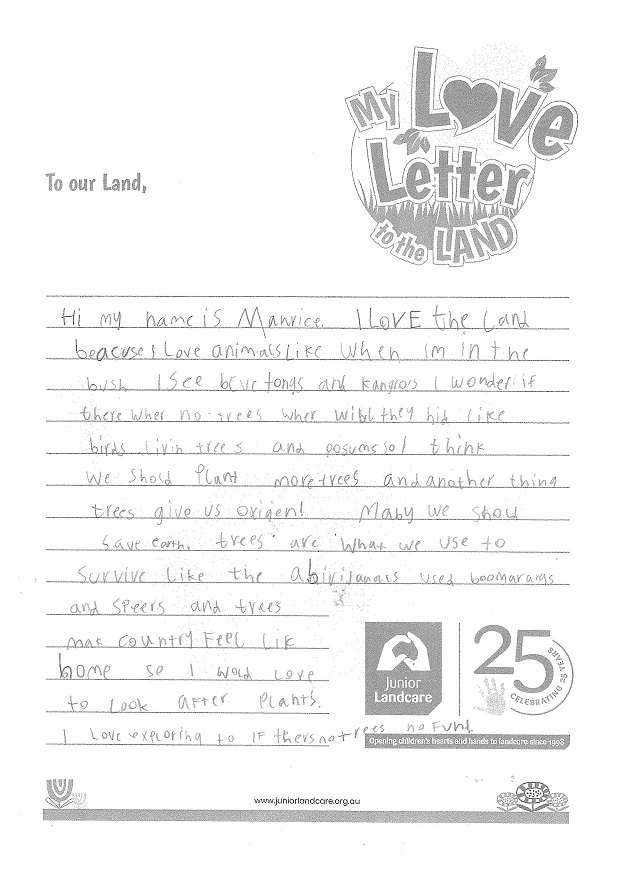 My Love
Letter
to the LAND
To our Land,
Hi my name is Manrice. I LOVE the Land
beacuse I Love animals Like when im in the
bush I see blue tongs and kangros I wonder if
there wher no trees wher will they hid like
birds liv in trees and posums so I think
we shold plant more trees and another thing
trees give us oxigen! Maby we shoud
save earth. trees are what we use to
survive like the abirijanals used boomarangs
and speers and trees
mak country Feel lik
home so I wold Love
to Look AFter Plants.
I Love exploring to IF thers no trees no Fun!
Junior
Landcare
25
CELEBRATING 25 YEARS
Opening children's hearts and hands to landcare since 1998
www.juniorlandcare.org.au